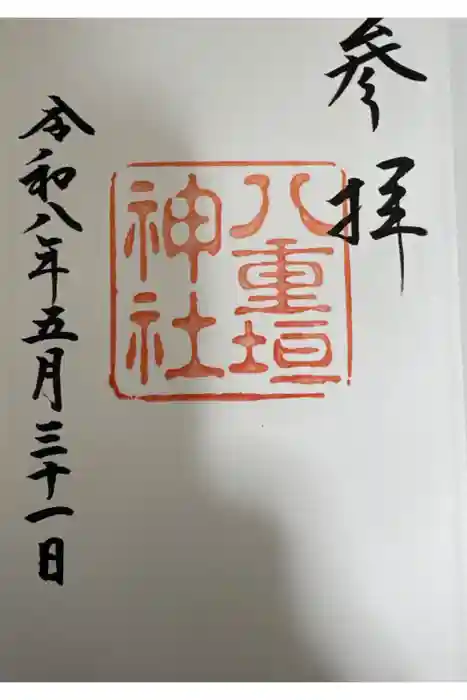 参拝
八重垣
神社
令和八年五月三十一日